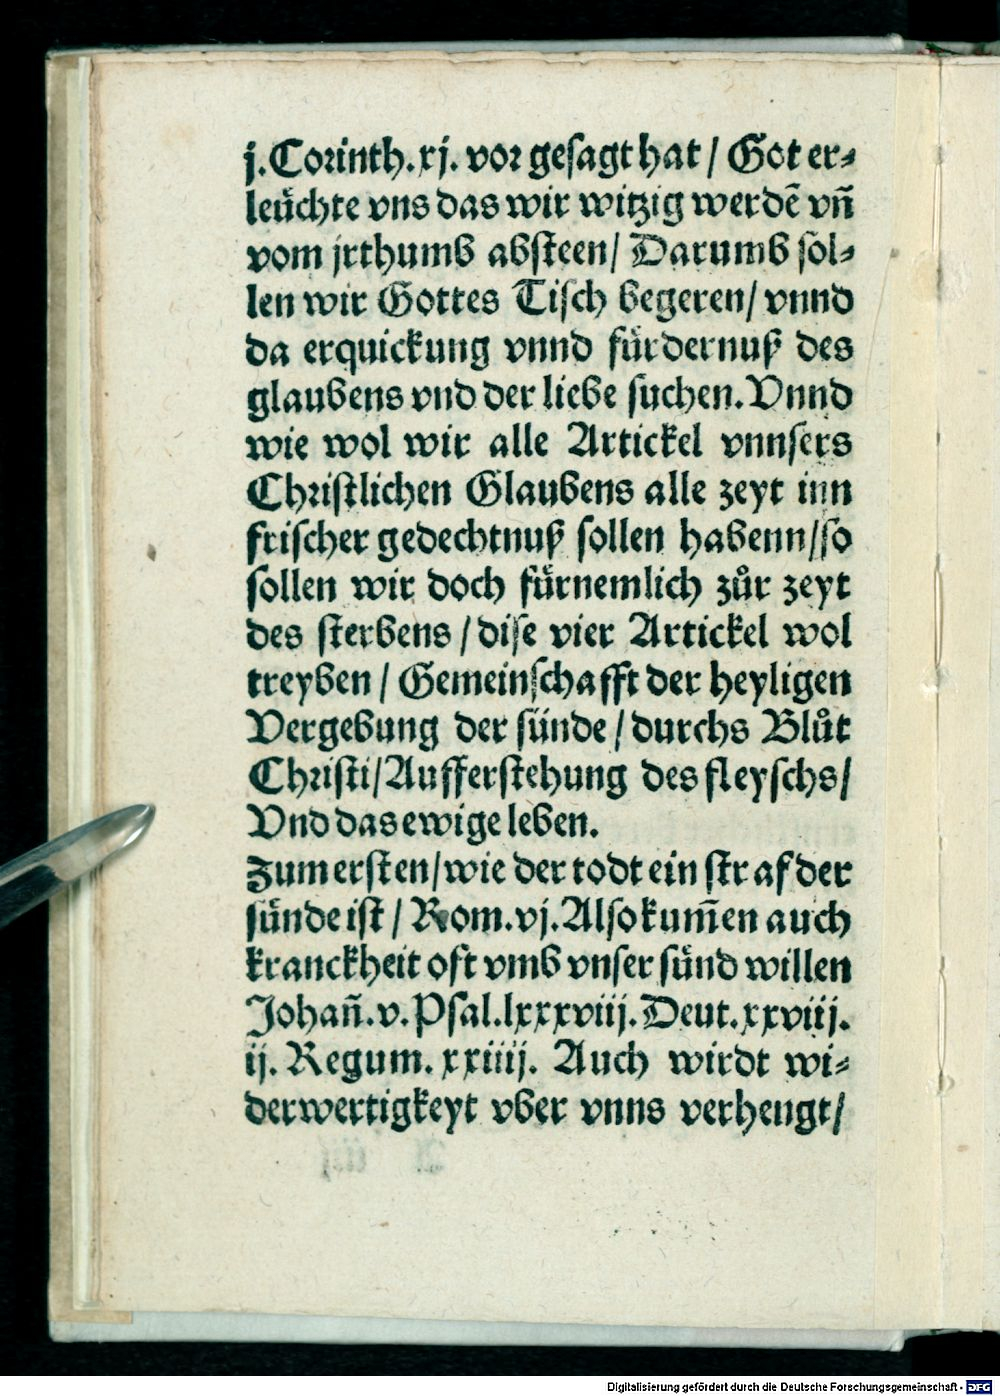 j. Corinth. xj. vor gesagt hat / Got er⸗
leüchte vns das wir witzig werdē vñ
vom jrthumb absteen / Darumb sol⸗
len wir Gottes Tisch begeren / vnnd
da erquickung vnnd fürdernuß des
glaubens vnd der liebe suchen. Vnnd
wie wol wir alle Artickel vnnsers
Christlichen Glaubens alle zeyt inn
frischer gedechtnuß sollen habenn / so
sollen wir doch fürnemlich zůr zeyt
des sterbens / dise vier Artickel wol
treyben / Gemeinschafft der heyligen
Vergebung der sünde / durchs Blůt
Christi / Aufferstehung des fleyschs /
Vnd das ewige leben.
Zum ersten / wie der todt ein straf der
sünde ist / Rom. vj. Also kum̄en auch
kranckheit oft vmb vnser sünd willen
Johañ. v. Psal. lxxxviij. Deut. xxviij.
ij. Regum. xxiiij. Auch wirdt wi⸗
derwertigkeyt vber vnns verhengt /
Digitalisierung gefördert durch die Deutsche Forschungsgemeinschaft - DFG